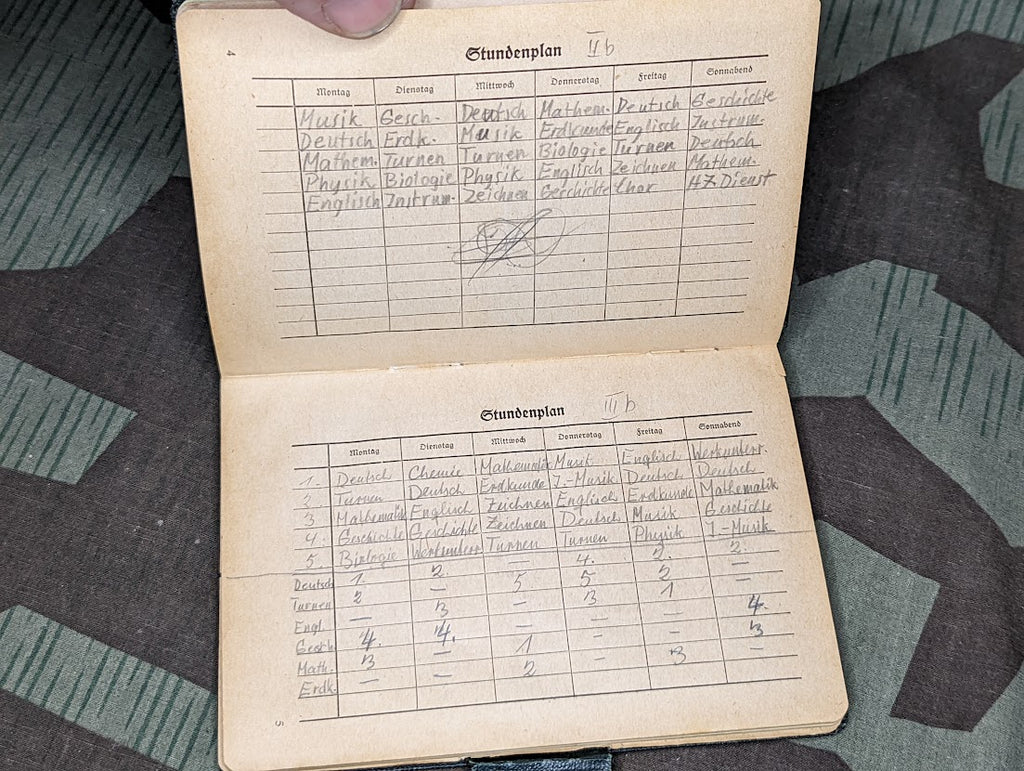 4
Stundenplan IIb
Montag Dienstag Mittwoch Donnerstag Freitag Sonnabend
Musik Gesch. Deutsch Mathem. Deutsch Geschichte
Deutsch Erdk. Musik Erdkunde Englisch Instrum.
Mathem. Turnen Turnen Biologie Turnen Deutsch
Physik Biologie Physik Englisch Zeichnen Mathem.
Englisch Instrum. Zeichnen Geschichte Chor HJ Dienst
Stundenplan IIIb
Montag Dienstag Mittwoch Donnerstag Freitag Sonnabend
1. Deutsch Chemie Mathematik Musik Englisch Werkunterr.
2 Turnen Deutsch Erdkunde J.-Musik Deutsch Deutsch
3 Mathematik Englisch Zeichnen Englisch Erdkunde Mathematik
4. Geschichte Geschichte Zeichnen Deutsch Musik Geschichte
5. Biologie Werkunterr Turnen Turnen Physik J.-Musik
Deutsch 1. 2. — 4. 2 2.
Turnen 2 — 5 5 2 —
Engl. — 3 — 3 1 —
Gesch 4. 4. — — — 4.
Math. 3 — 1 — — 3
Erdk. — — 2 — 3 —
5